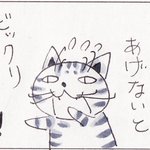 あげないと
ビックリ!